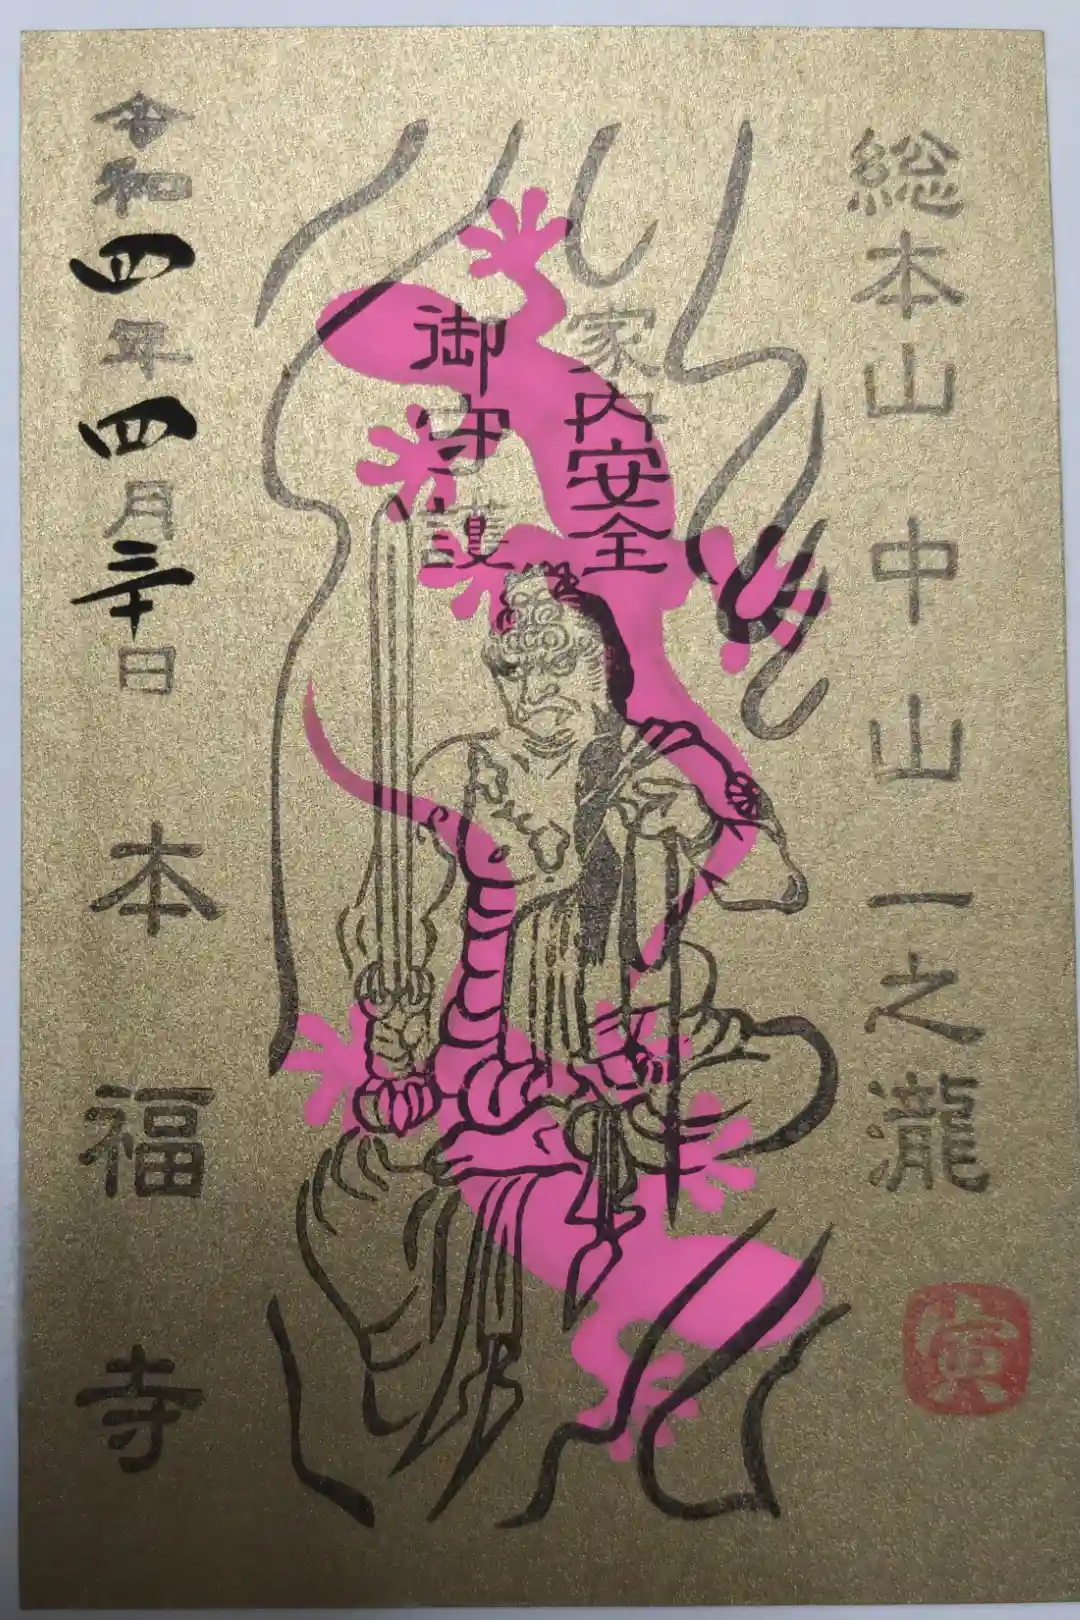 総本山中山一之瀧
寅
家内安全
御守護
令和四年四月三十日
本福寺